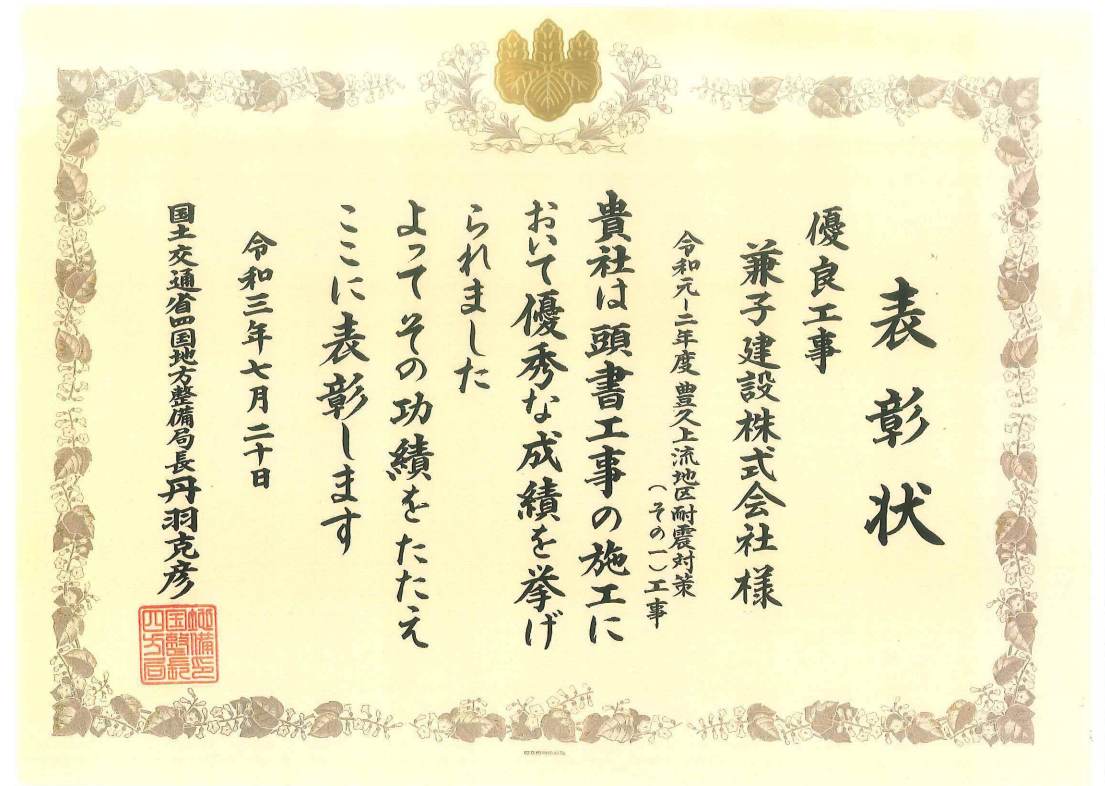 表彰状
優良工事
兼子建設株式会社様
令和元-二年度 豊久上流地区耐震対策
(その一)工事
貴社は頭書工事の施工に
おいて優秀な成績を挙げ
られました
よってその功績をたたえ
ここに表彰します
令和三年七月二十日
国土交通省四国地方整備局長 丹羽克彦